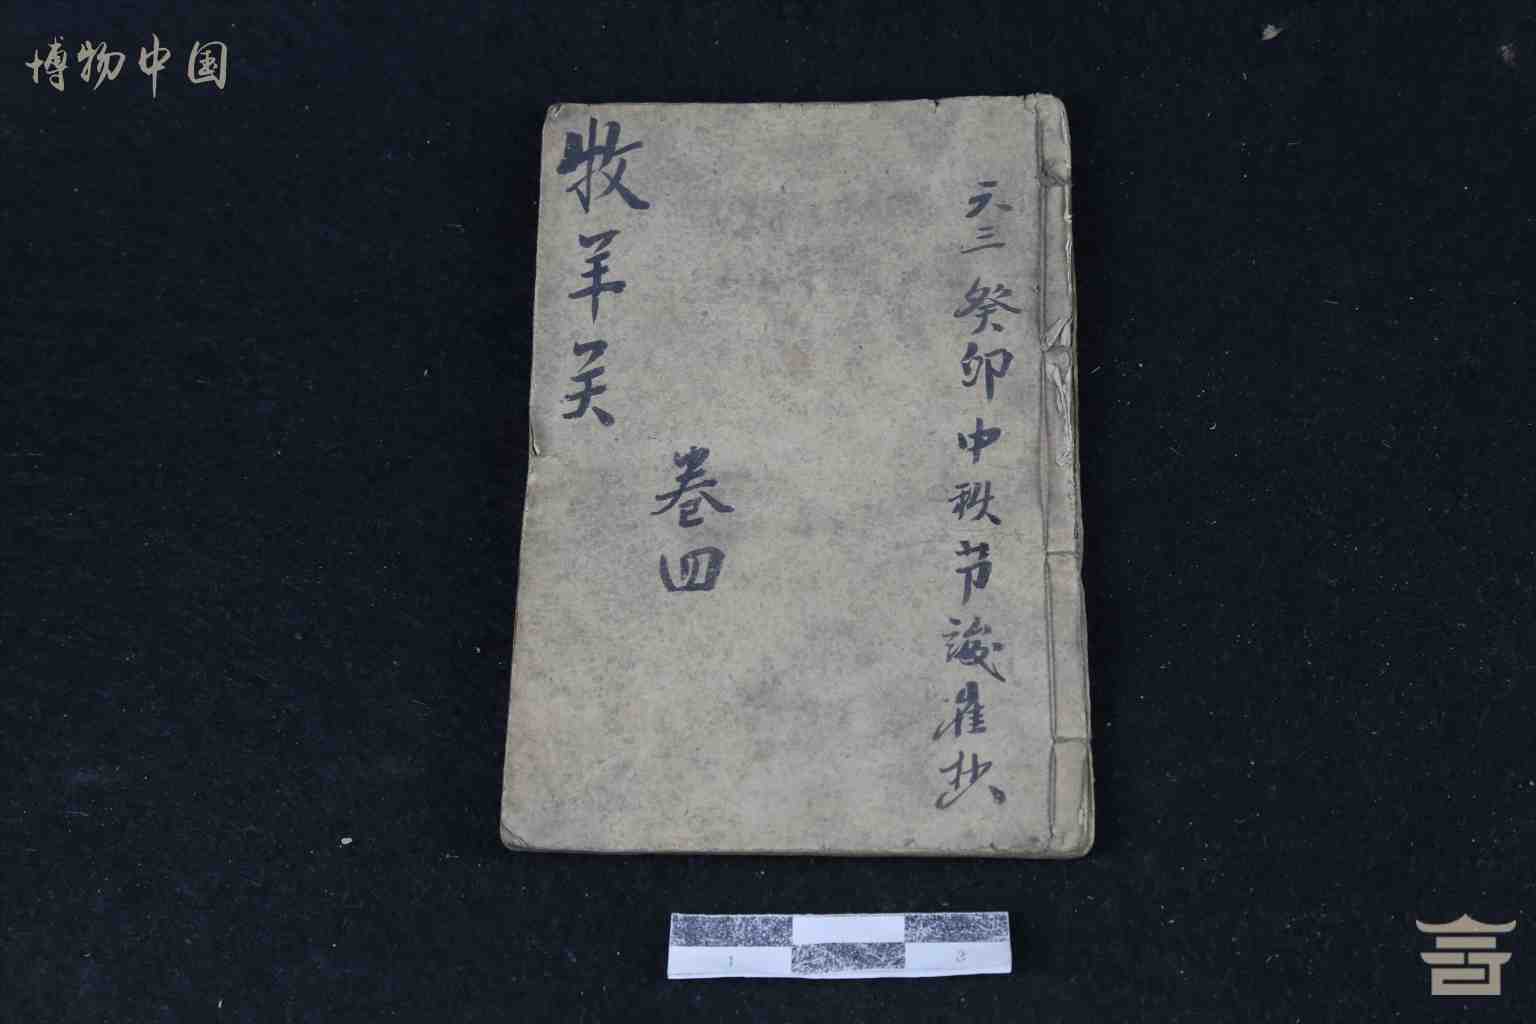 博物中国
六三癸卯中秋节議准抄
牧羊关
卷四
1
2